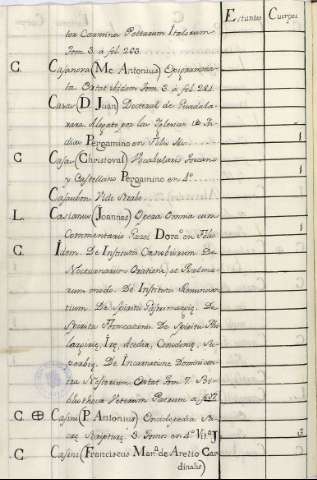 Estantes Cuerpos
tor Carmina Poetarum Italorum
Tom. 3. a fol. 203.
C. Casanova (Mc. Antonius) Epigrammata
ta Extat ibidem Tom. 3. a fol. 281.
Casas (D. Juan) Doctoral de Guadalaxara
Alegato por las Yglesias de Indias
Pergamino en folio 1
C Casas (Christoval) Vocabulario Toscano
y Castellano Pergamino en 4º. 1
Casaubon Vide
L. Casianus (Joannes) Opera Omnia cum
Commentariis Dorº. en Folio 1
C. Idem. De Institutis Cœnobiorum De
Nocturnarum Orationum, et Psalmorum
modo. De Institutis Renuntiantium
De Spiritu Gastrimargiæ. De
Spiritu Fornicationis De Spiritu Philargiriæ,
Iræ, Acediæ, Cenodoxiæ, Superbiæ.
De Incarnatione Domini
Extat Tom. 7. Bibliotheca
Veterum Patrum a
C. ⊕ Casini (P. Antonius) Enciclopedia Sacræ
Scripturæ 3. Tomos en 4º. Vitª. J 3
C Casini (Franciscus Marª. de Aretio Cardinalis)